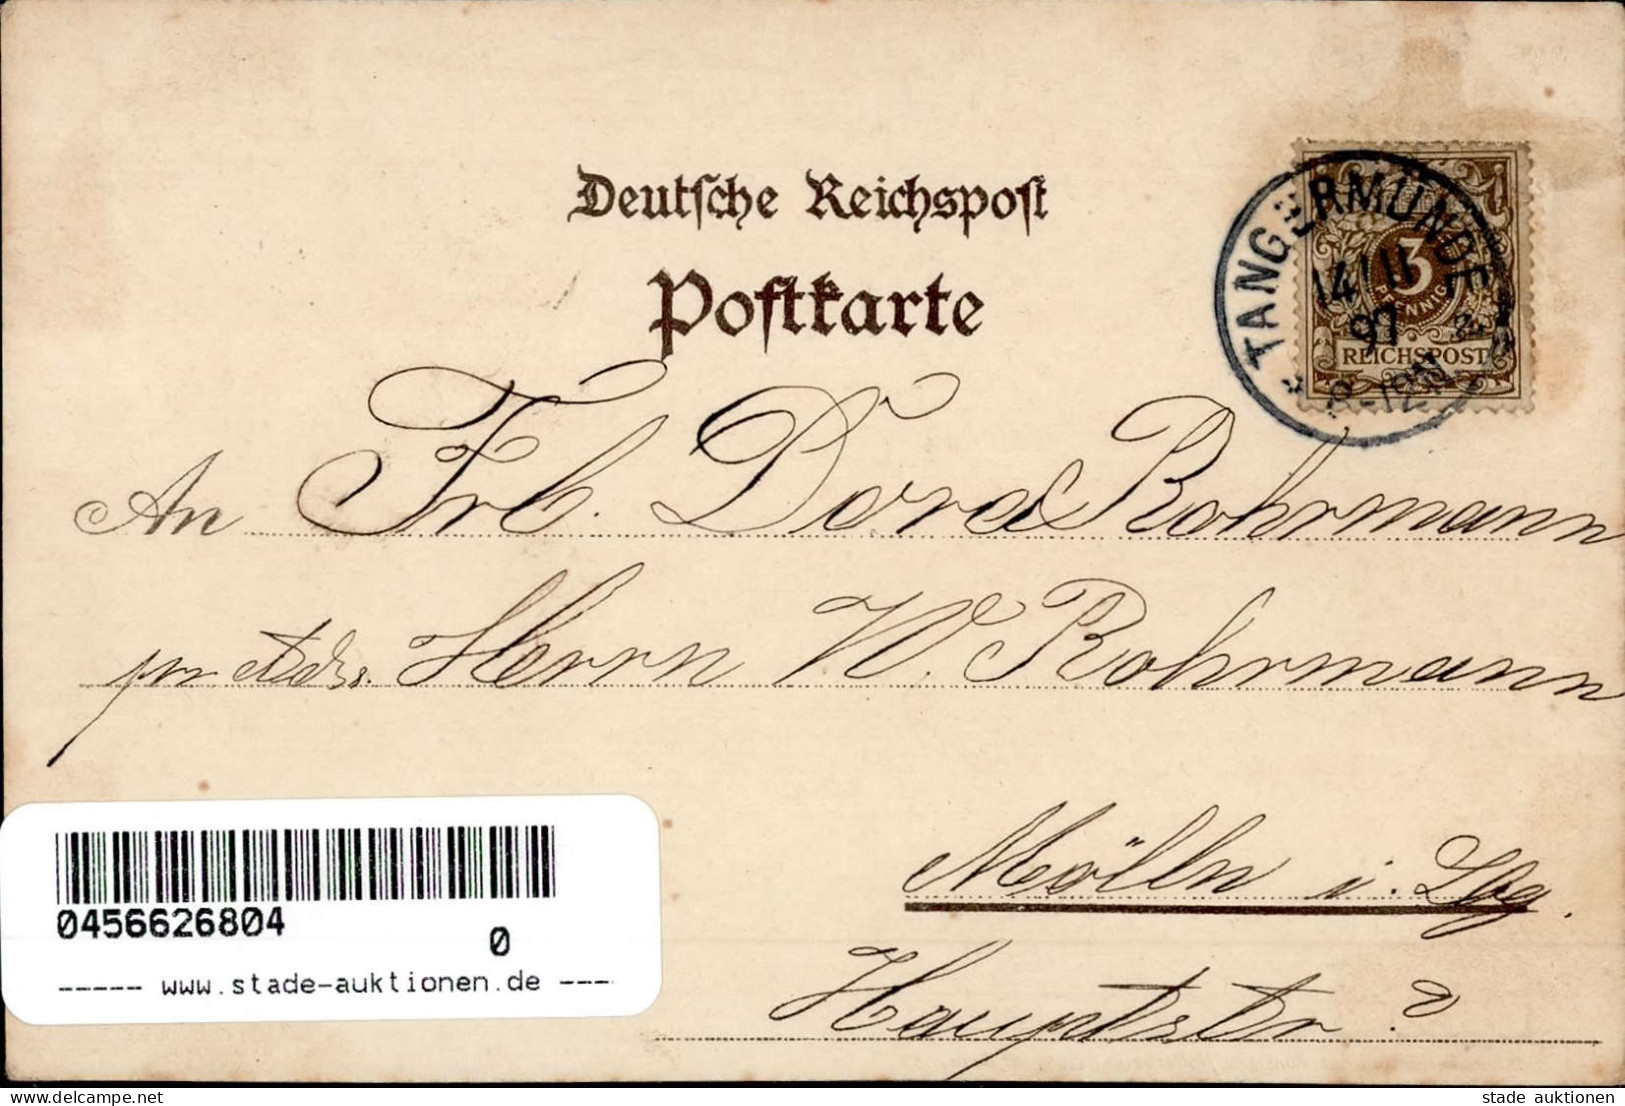 Deutsche Reichspost
Postkarte
TANGERMÜNDE
14 11
97
3
PFENNIG
REICHSPOST
An Frl. Dora Rohrmann
pr. Adr. Herrn W. Rohrmann
Mölln i. Lbg.
Hauptstr.
0456626804
0
----- www.stade-auktionen.de ----
stade auktionen
stade auktionen